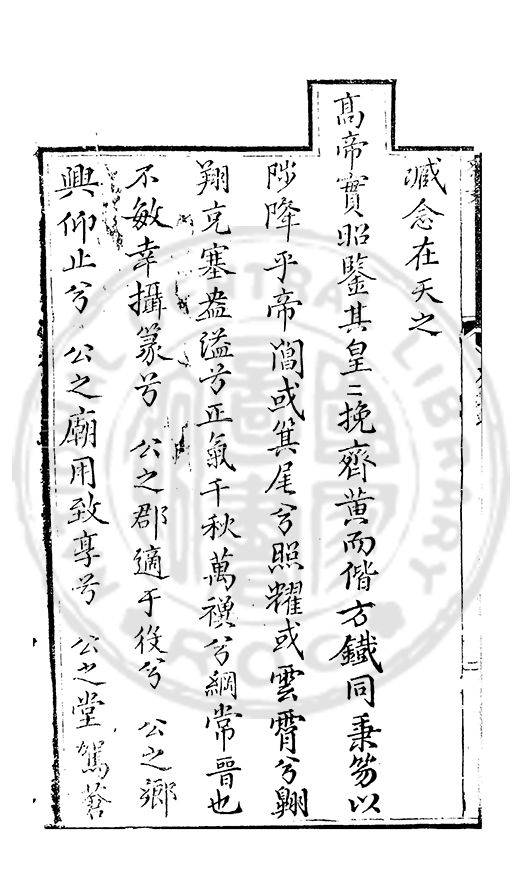 臧念在天之
高帝實昭鑒其皇〻挽齊黄而偕方鐵同秉笏以
陟降乎帝閽或箕尾兮照耀或雲霄兮翺
翔充塞盎溢兮正氣千秋萬禩兮綱常晉也
不敏幸攝篆兮 公之郡適于役兮 公之鄉
興仰止兮 公之廟用致享兮 公之堂駕蒼